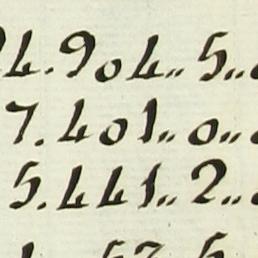 4.904.. 5..
7.401.. 0..
5.441.. 2..